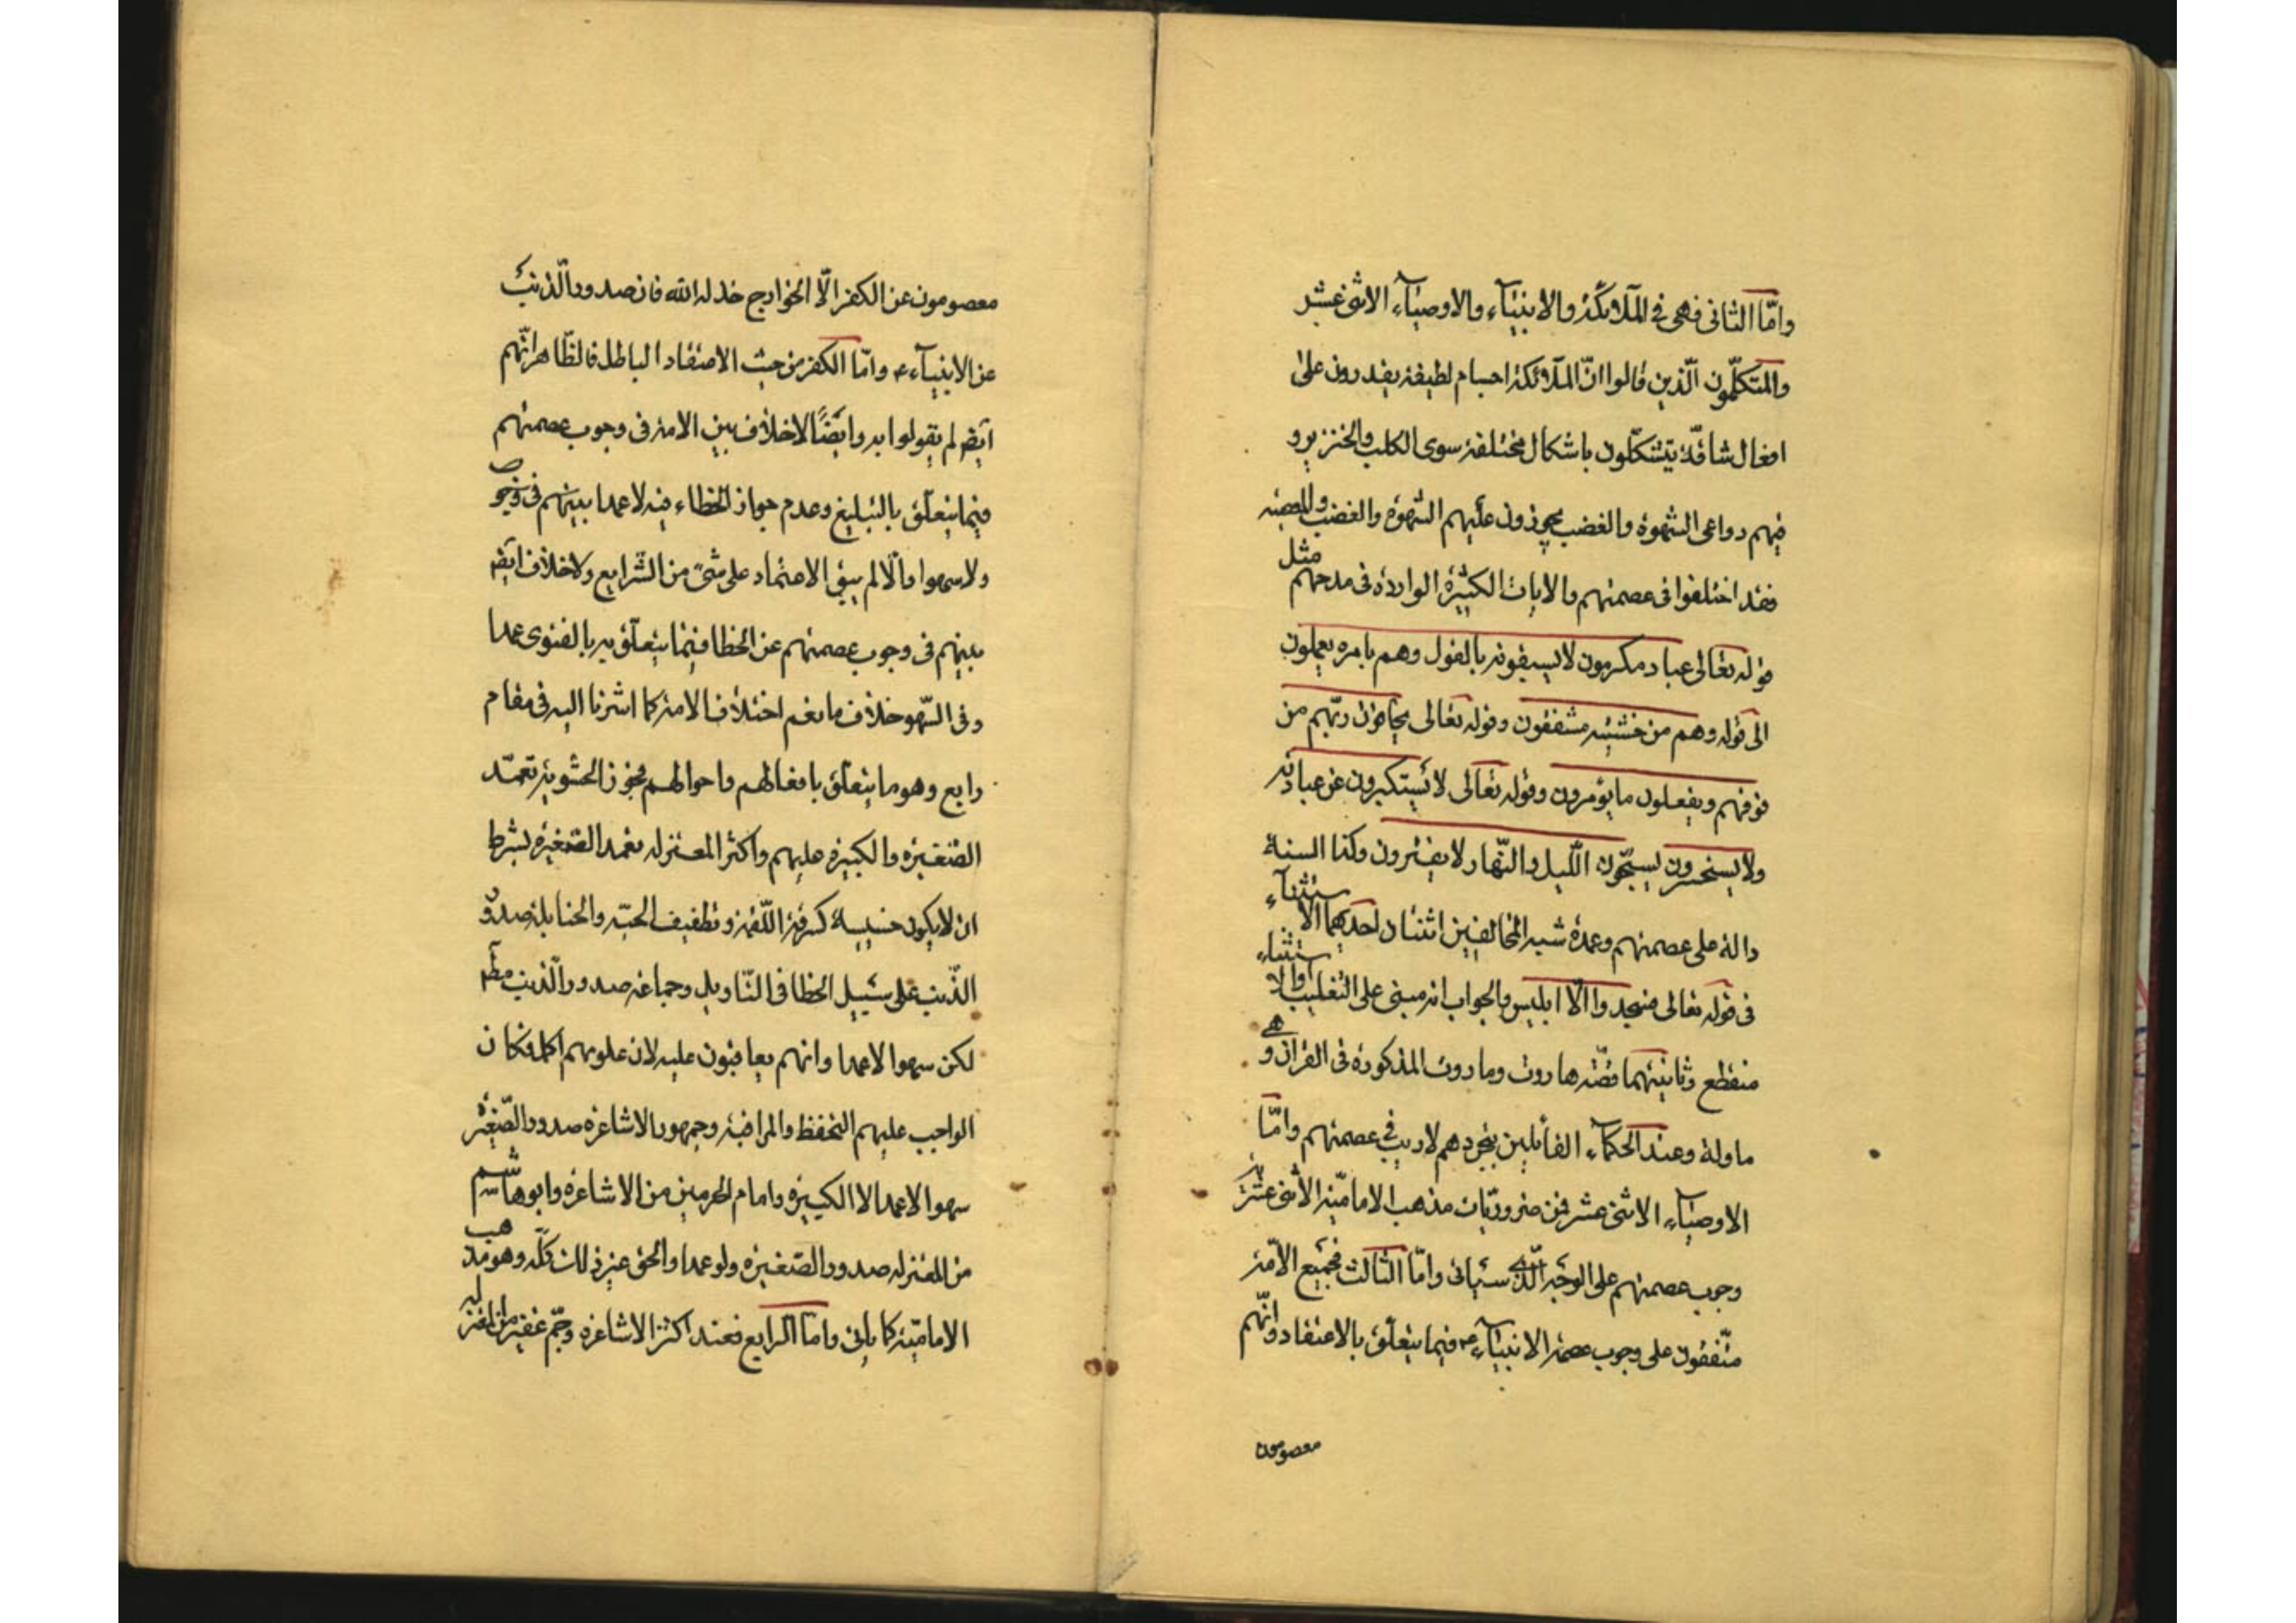 وامّا الثانى فهى فى الملائكة والانبيآء والاوصيآء الاثنى عشر
والمتكلّمون الّذين قالوا انّ الملائكة اجسام لطيفة يقدرون على
افعال شاقّة يتشكّلون باشكال مختلفة سوى الكلب والخنزير و
فيهم دواعى الشهوة والغضب يجوزون عليهم الشهوة والغضب والمعصية
فقد اختلفوا فى عصمتهم والايات الكثيرة الواردة فى مدحهم مثل
قوله تعالى عباد مكرمون لا يسبقونه بالقول وهم بامره يعملون
الى قوله وهم من خشيته مشفقون وقوله تعالى يخافون ربّهم من
فوقهم ويفعلون ما يؤمرون وقوله تعالى لا يستكبرون عن عبادته
ولا يستحسرون يسبّحون اللّيل والنّهار لا يفترون وكذا السنة
دالة على عصمتهم وعمدة شبه المخالفين اثنتان احديهما الاستثنآء
فى قوله تعالى فسجدوا الّا ابليس والجواب انه مبنى على التغليب والاستثناء
منقطع وثانيتهما قصّة هاروت وماروت المذكورة فى القرآن وهى
ماولة وعند الحكمآء القائلين بتجردهم لا ريب فى عصمتهم وامّا
الاوصيآء الاثنى عشر فمن ضروريّات مذهب الاماميّة الاثنى عشرية
وجوب عصمتهم على الوجه الّذى سياتى وامّا الثالث فجميع الامّة
متّفقون على وجوب عصمة الانبيآء ع فيما يتعلّق بالاعتقاد وانّهم
معصومون
معصومون عن الكفر الّا الخوارج خذلهم الله فان صدور الّذنب
عن الانبيآء ع وامّا الكفر من حيث الاعتقاد الباطل فالظّاهر انّهم
ايضا لم يقولوا به وايضًا لاخلاف بين الامة فى وجوب عصمتهم
فيما يتعلّق بالتبليغ وعدم جواز الخطاء فيه لا عمدا بينهم فى وجو
ولا سهوا والّا لم يبق الاعتماد على شىء من الشّرايع ولاخلاف ايضا
بينهم فى وجوب عصمتهم عن الخطا فيما يتعلّق به بالفتوى عمدا
وفى السّهو خلاف ما نعم اختلاف الامة كما اشرنا اليه فى مقام
رابع وهو ما يتعلّق بافعالهم واحوالهم فجوز الحشوية تعمّد
الصّغيرة والكبيرة عليهم واكثر المعتزله تعمد الصّغيرة بشرط
ان لايكون خسيسة كسرقة اللّقمة وتطفيف الحبّه والحنابلة صدور
الذّنب على سبيل الخطا فى التّاويل وجماعة صدور الّذنب مطم
لكن سهوا لا عمدا وانهم يعاقبون عليه لان علومهم اكمل فكان
الواجب عليهم التحفظ والمراقبة وجمهور الاشاعرة صدور الصّغيرة
سهوا لا عمدا لا الكبيرة وامام الحرمين من الاشاعرة وابوهاشم
من المعتزله صدور الصّغيرة ولو عمدا والحق غير ذلك كلّه وهو مذهب
الاماميّة كما ياتى وامّا الرابع فعند اكثر الاشاعرة وجمّ غفير من المعتزله